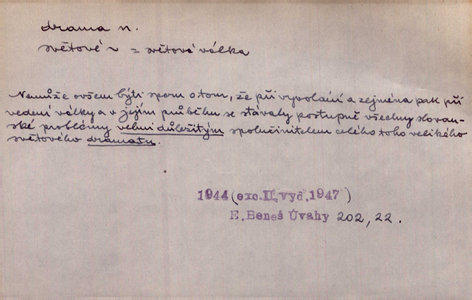 drama n.
světové ~ = světová válka
Nemůže ovšem býti spor o tom, že při vypolání a zejména pak při
vedení války a v jejím průběhu se stávaly postupně všechny slovan-
ské problémy velmi důležitým spolučinitelem celého toho velikého
světového dramatu.
1944 (exc.II.vyd.1947)
E.Beneš Úvahy 202, 22.